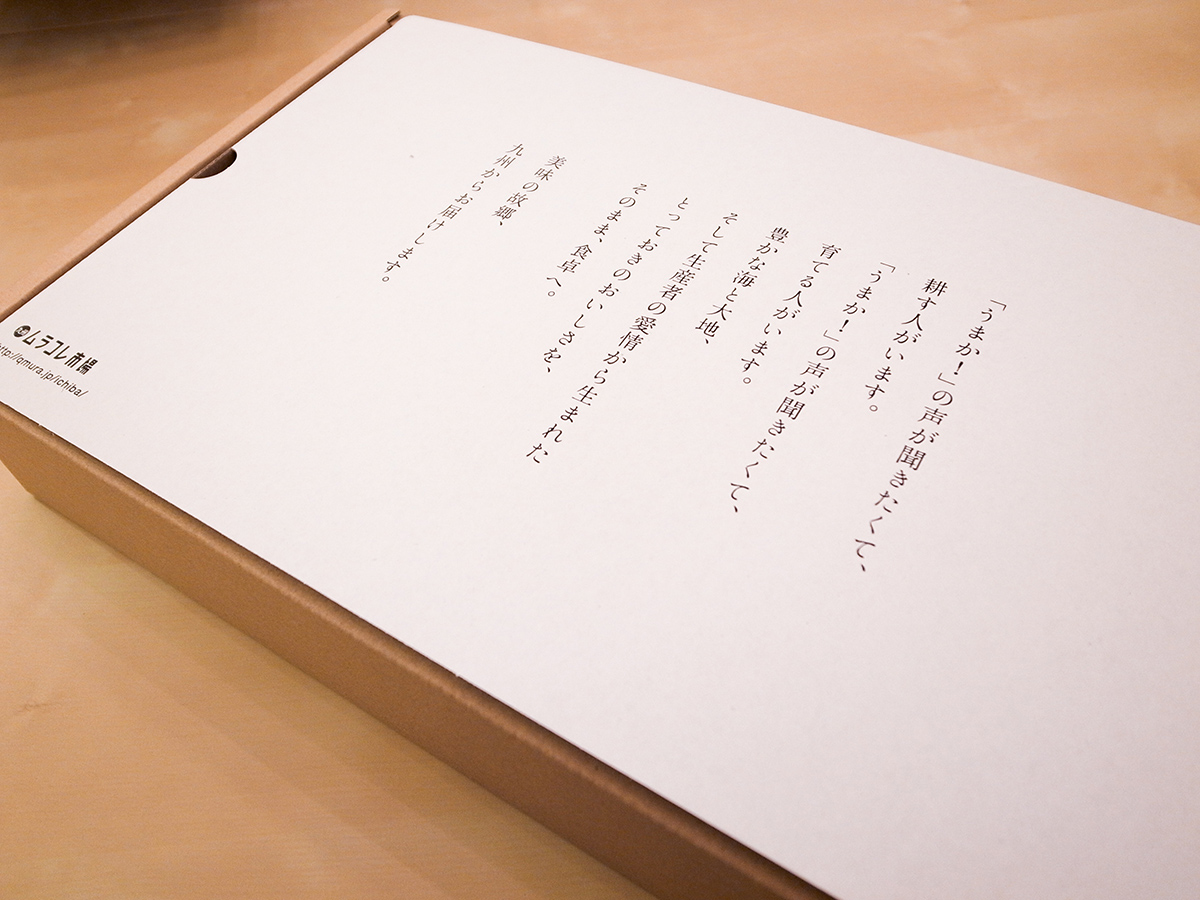 「うまか！」の声が聞きたくて、
耕す人がいます。
「うまか！」の声が聞きたくて、
育てる人がいます。
豊かな海と大地、
そして生産者の愛情から生まれた
とっておきのおいしさを、
そのまま、食卓へ。
美味の故郷、
九州からお届けします。
ムラコレ市場
http://qmura.jp/ichiba/